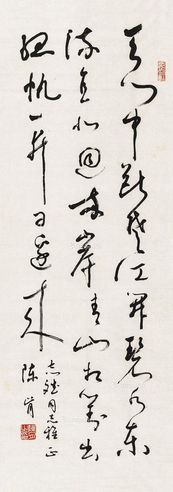 天门中断楚江开碧水东
流至此回两岸青山相对出
孤帆一片日边来
同志雅正
陈肯